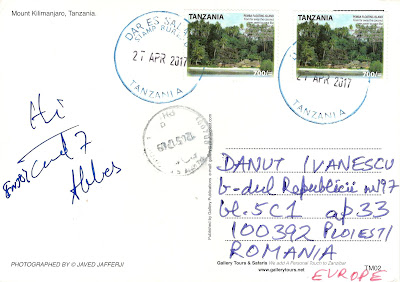 Mount Kilimanjaro, Tanzania.
DAR ES SALA
STAMP BUREAU
27 APR 2017
TANZANIA
TANZANIA
PEMBA FLOATING ISLAND
700/=
TANZANIA
PEMBA FLOATING ISLAND
700/=
27 APR 2017
TANZANIA
Hi
Abbas
DANUT IVANESCU
b-dul Republicii nr 197
bl. 5C1 ap 33
100392 PLOIESTI
ROMANIA
EUROPE
PHOTOGRAPHED BY © JAVED JAFFERJI
Gallery Tours & Safaris We add A Personal Touch to Zanzibar
www.gallerytours.net
TM02